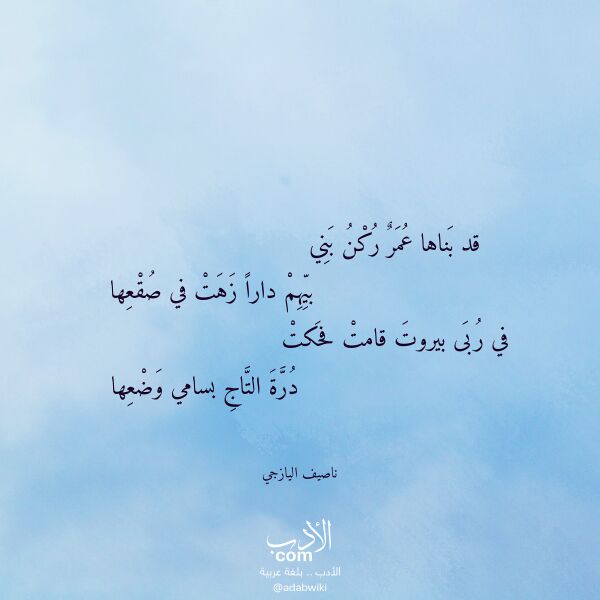 قد بَناها عُمَرٌ رُكْنُ بَنِي
بيِّهِمْ داراً زَهَتْ في صُقْعِها
في رُبَى بيروتَ قامتْ فحَكتْ
دُرَّةَ التَّاجِ بسامي وَضْعِها
ناصيف اليازجي
الأدب
com
الأدب .. بلغة عربية
@adabwiki